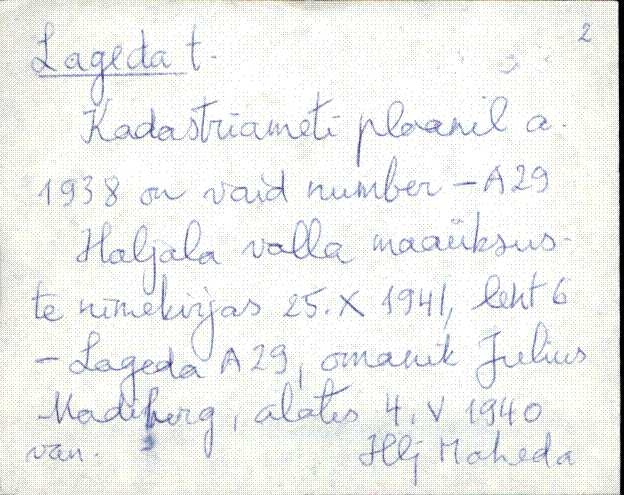 2
Lageda t.
Kadastriameti plaanil a.
1938 on vaid number – A29
Haljala valla maaüksus-
te nimekirjas 25.X 1941, leht 6
– Lageda A29, omanik Julius
Madiberg, alates 4.V 1940
van. Hlj Maheda